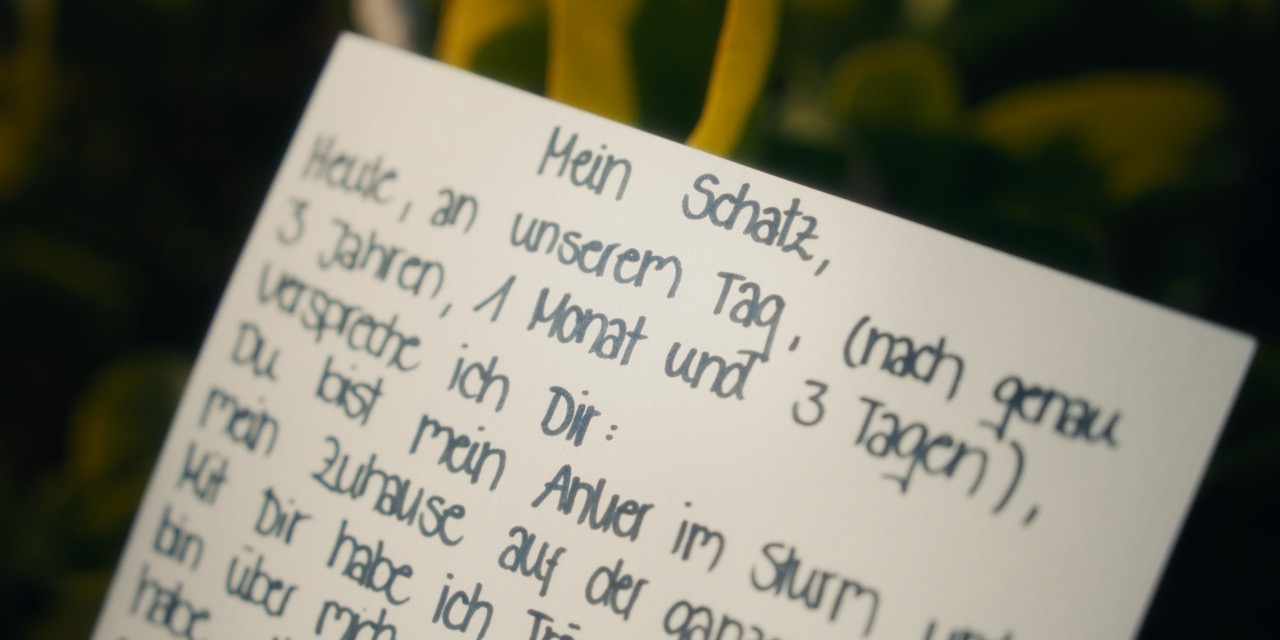 Mein Schatz,
Heute, an unserem Tag, (nach genau
3 Jahren, 1 Monat und 3 Tagen),
verspreche ich Dir:
Du bist mein Anker im Sturm und
mein Zuhause auf der ganzen
Mit Dir habe ich
bin über mich
habe